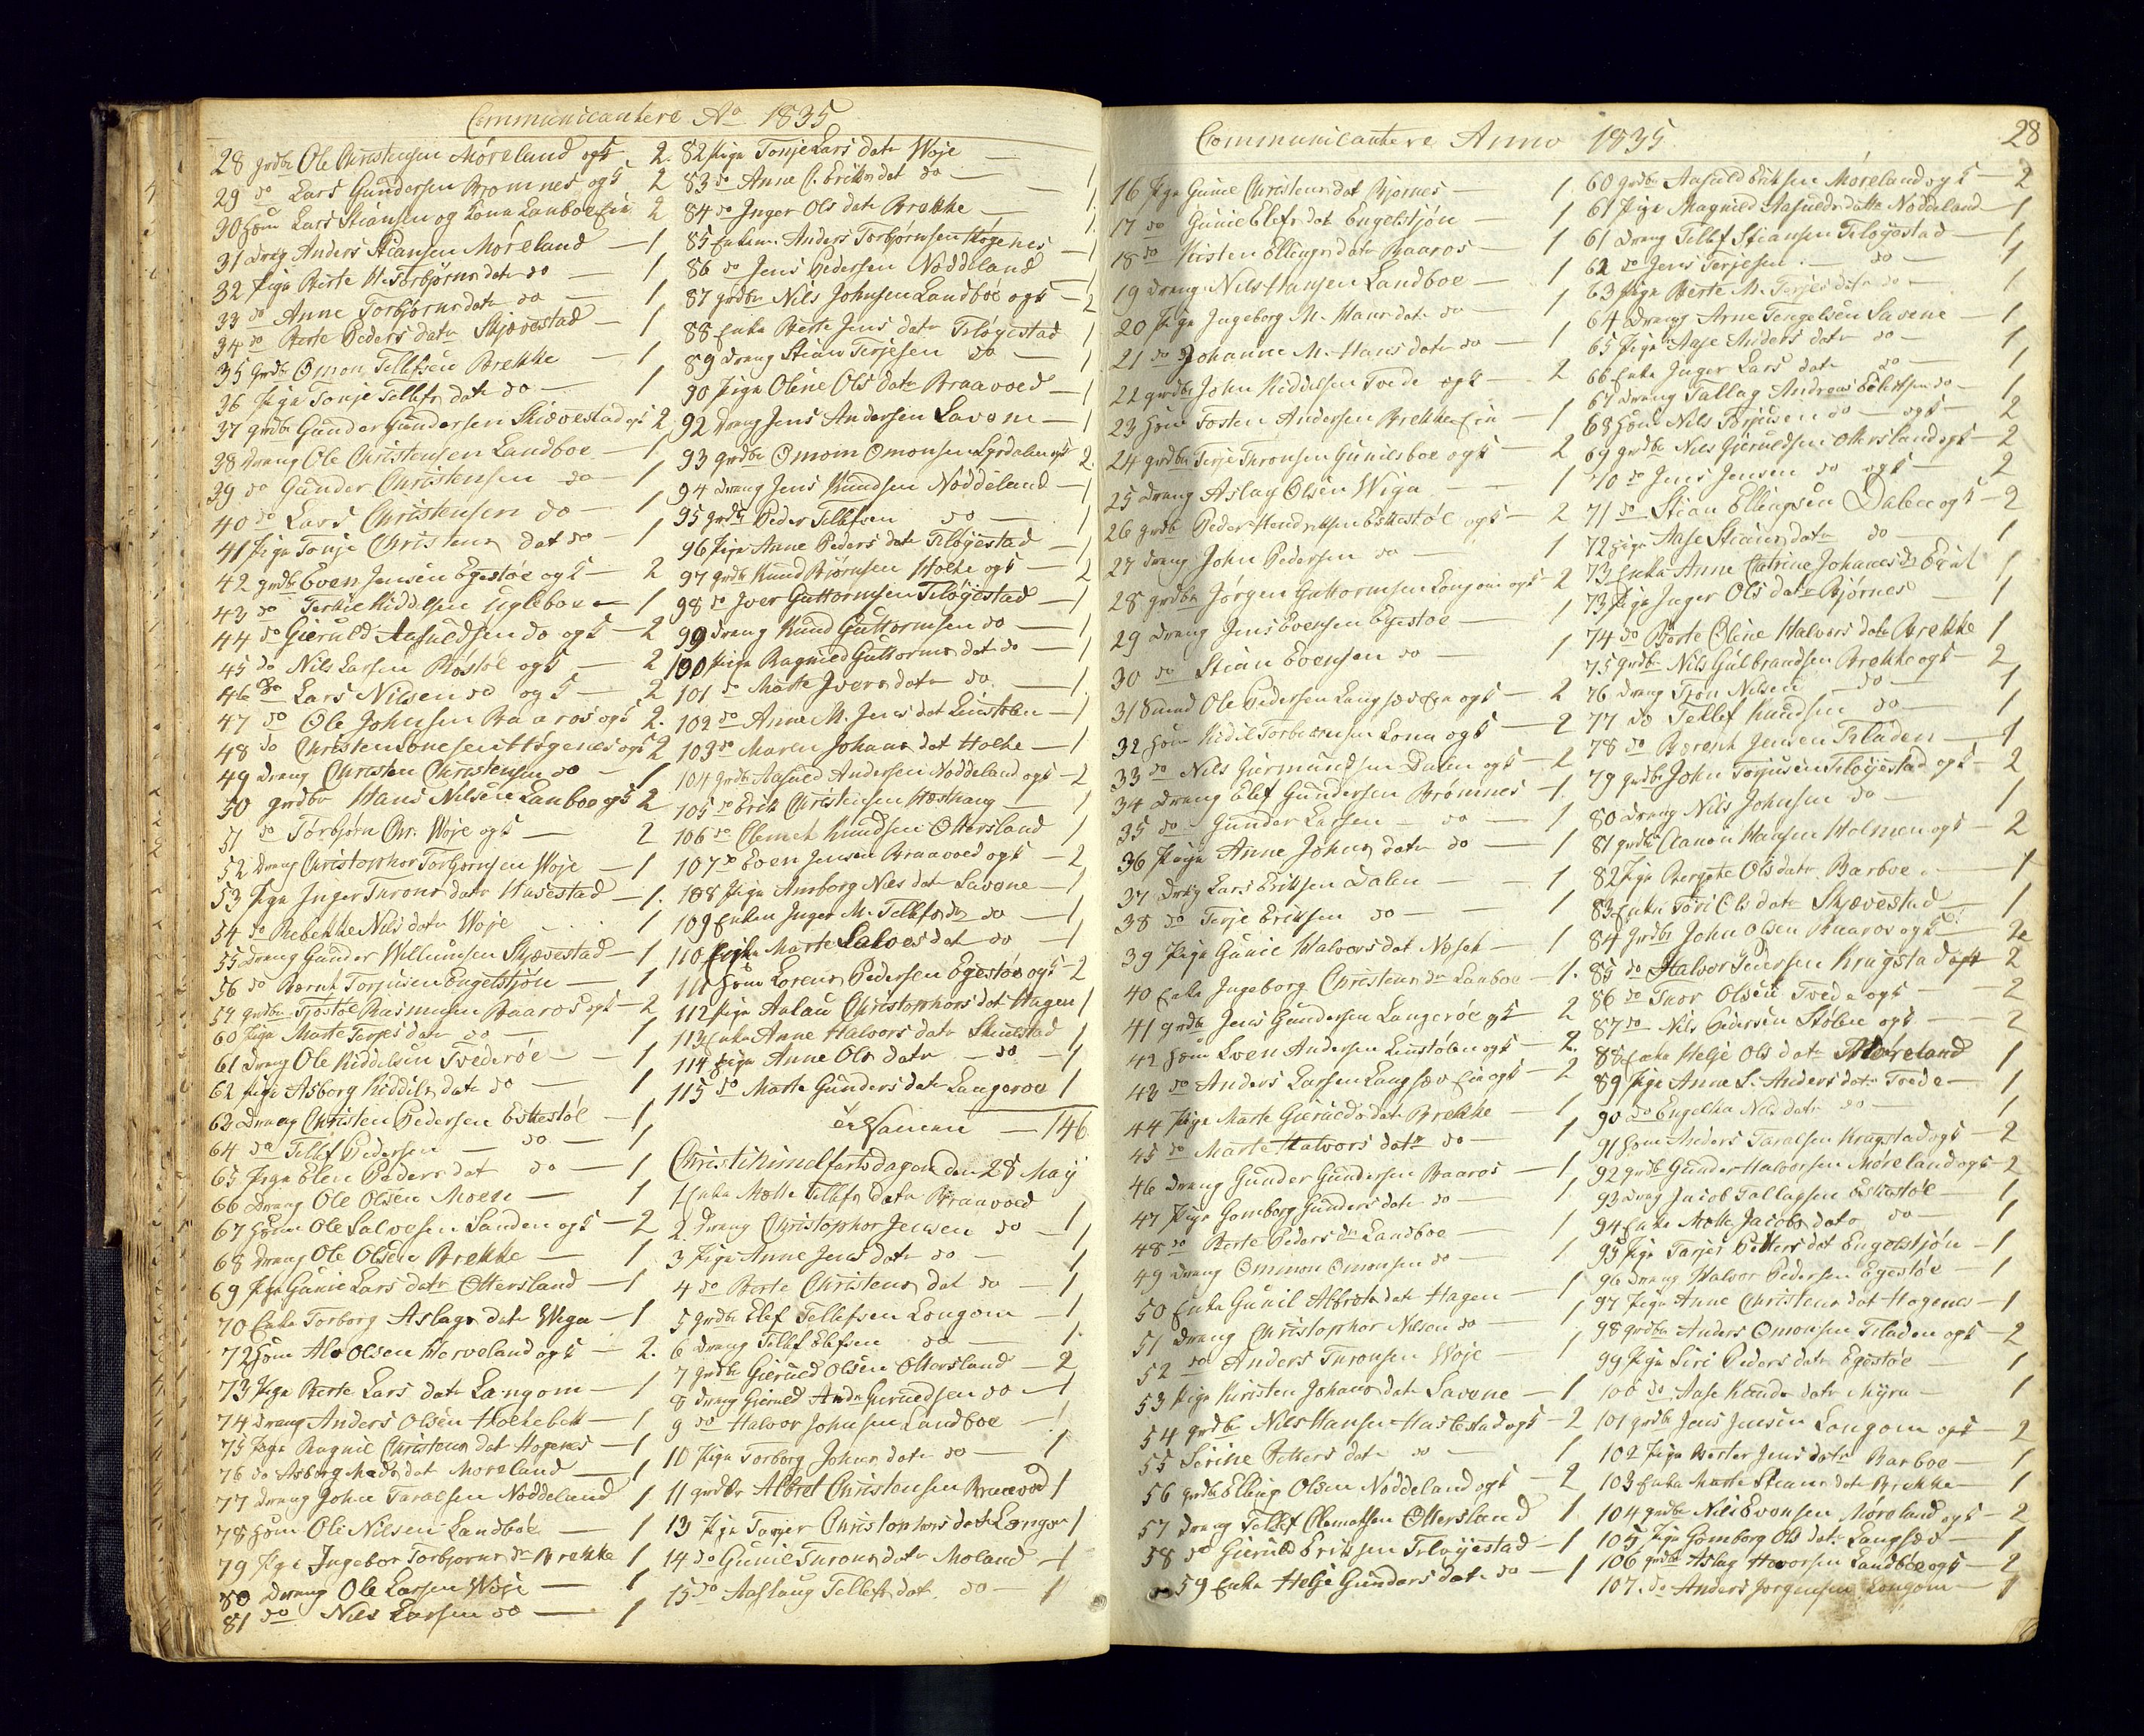 Communicantere Ao 1835
28 grdbr Ole Christensen Møreland ogK 2.
29 do Lars Gundersen Bromnes ogK 2
30 Huum Lars Stiansen og Kona Lanboe Eie 2
31 Drng Anders Stiansen Møreland — 1
32 Piga Berte M. Torbjørns datr do — 1
33 do Anne Torbjørns datr do — 1
34 do Berte Peders datr Skjævestad — 1
35 grdbr Omon Tellefsen Brekke — 1
36 Piga Tonje Tellefs datr do — 1
37 grdbr Gunder Gundersen Skiævestad ogK 2
38 Drang Ole Christensen Landboe — 1
39 do Gunder Christensen do — 1
40 do Lars Christensen do — 1
41 Piga Tonje Christens dat do — 1
42 grdbr Even Jensen Egestøe ogK — 2
43 do Terkil Kiddelsen Ugleboe — 1
44 do Gieruld Aasuldsen do ogK — 2
45 do Nils Larsen Røstøl ogK — 2
46 do Lars Nilsen do ogK — 2
47 do Ole Johnsen Baaros ogK 2.
48 do Christen Høgenes ogK 2
49 Drang Christen Christensen do — 1
50 grdbr Hans Nilsen Lanboe ogK 2
51 do Torbjørn Chr. Woje ogK — 2
52 Drang Christopher Torbjørnsen Woje — 1
53 Piga Inger Throns datr Hasestad — 1.
54 do Rebekke Nils datr Woje 1
55 Drang Gunder Willumsen Skjævestad — 1
56 do Bernt Torjusen Engelstjøn — 1
59 grdbr Tjøstøl Rasmusen Baaros ogK — 2
60 Piga Marte Terjes datr do — 1
61 Drang Ole Kiddelsen Tvederøe — 1
62 Piga Asborg Kiddels datr do — 1
63 Drang Christen Pedersen Eskestøl — 1
64 do Tellef Pedersen — do — 1
65 Piga Elen Peders dat do — 1
66 Drang Ole Olsen Moen — 1
67 Huum Ole Salvesen Sanden ogK — 2
68 Drang Ole Olsen Brekke — 1
69 Piga Gunil Lars datr Ottersland — 1
70 Enke Torborg Aslags datr Wiga — 1
72 Huum Alv Olsen Herveland ogK — 2.
73 Piga Berte Lars datr Langom — 1
74 Drang Anders Olsen Holtebek — 1
75 Piga Ragnil Christens dat Hogenes — 1
76 do Asborg Mads dat Moreland — 1
77 Drang John Taralsen Noddeland 1
78 Huum Ole Nilsen Landboe — 1
79 Piga Ingebor Torbjorns dr Brekke 1
80 Drang Ole Larsen Woje — 1
81 do Nils Larsen do — 1
82 Piga Tonje Lars datr Woje — 1
83 do Anne C. Eriks dat do — 1
84 do Inger Ols datr Brekke — 1
85 Enkem. Anders Torbjørnsen Høgenes — 1
86 do Jens Pedersen Noddeland 1
87 grdbr Nils Johnsen Landboe ogK — 2
88 Enke Berte Jens datr Fløgestad 1
89 Drang Stian Terjesen do — 1
90 Piga Oline Ols datr Braavoed — 1
92 Drang Jens Andersen Savone — 1
93 grdbr Omoin Omonsen Lyrdalen ogK 2.
94 Drang Jens Knudsen Noddeland — 1
95 grdbr Peder Tellefsen do — 1
96 Piga Anne Peders datr Fløgestad — 1
97 grdbr Knud Bjørnsen Holte ogK — 2
98 do Iver Guttormsen Fløgestad — 1
99 Drang Knud Guttormsen do — 1
100 Piga Ragnild Guttorms dat do — 1
101 do Marte Ivers datr do — 1
102 do Anne M. Jens dat Linstølen — 1
103 do Maren Johans dat Holte — 1
104 grdbr Aasuld Andersen Noddeland ogK — 2
105 do Erik Christensen Hæsthang — 1
106 do Clemet Knudsen Ottersland 1
107 do Even Jensen Braavoed ogK — 2
108 Piga Amborg Niels datr Savone — 1
109 Enken Inger M. Tellefs dr do — 1
110 Enke Marte Salves dat do — 1
111 Huum Lorens Pedersen Egestøe ogK — 2
112 Piga Aslau Christophers dat Hagen 1
113 Enke Anne Halvors datr Skiulstad 1
114 Piga Anne Ols datr — do — 1
115 do Marte Gunders datr Langeroe 1
er Samen — 146
Christi himelfartsdagen den 28 Maij
1 Enke Molle Tellefs datr Braavoed 1
2. Drang Christopher Jensen do — 1
3 Piga Anne Jens datr do — 1
4 do Berte Christens dat do — 1
5 grdbr Elef Tellefsen Longom — 1
6 Drang Tellef Elefsen do — 1.
7 grdbr Gieruld Olsen Ottersland — 2
8 Drang Gieruld Gieruldsen do — 1
9 do Halvor Johnsen Landboe — 1
10 Piga Torborg Johns datr do — 1
11 grdbr Albret Christensen Braavod 1
13 Piga Tarjer Christophers datr Longom 1
14 do Gunil Throns datr Moland — 1
15 do Aaslaug Tellefs dat do — 1
Communicantere Anno 1835
28
16 Piga Gunil Christens dat Bjornes — 1
17 do Gunil Elefs dat Engelstjøn — 1
18 do Kirsten Ellings datr Baaros — 1
19 Drang Nils Hansen Landboe — 1
20 Piga Ingeborg M. Hans dat do — 1
21 do Johanne M. Hans datr do — 1
22 grdbr John Kiddelsen Tvede ogK — 2
23 Huum Tosten Andersen Brekke Eie — 1
24 grdbr Terje Thronsen Gunilsboe ogK — 2
25 Drang Aslag Olsen Wiga — 1
26 grdb Peder Hendriksen Eskestøl ogK — 2
27 Drang John Pedersen do — 1
28 grdbr Jørgen Guttormsen Longom ogK — 2
29 Drang Jens Evensen Egestoe — 1
30 do Stian Evensen do — 1
31 Smed Ole Pedersen Langsæv Eie ogK — 2
32 Huum Kidil Torbiørnsen Lona ogK — 2
33 do Nils Giermundsen Dalen ogK — 2
34 Drang Elef Gundersen Brømnes — 1.
35 do Gunder Larsen — do — 1
36 Piga Anne Johns datr do — 1
37 Drang Lars Eriksen Dalen — 1
38 do Terje Eriksen do — 1
39 Piga Gunil Halvors dat Neset — 1
40 Enke Ingeborg Christens dr Lanboe — 1.
41 grdbr Jens Gundersen Langerøe ogK 2
42 Huum Sven Andersen Linstølen ogK — 2.
43 do Anders Larsen Langsæv Eie ogK — 2
44 Piga Marte Gierulds dat Brekke — 1
45 do Marte Halvors datr do — 1
46 Drang Gunder Gundersen Baaros — 1
47 Piga Gomborg Gunders datr do — 1.
48 do Berte Peders dr Landboe — 1
49 Drang Ommon Omonsen do — 1
50 Enke Gunil Albrets datr Hagen — 1
51 Drang Christopher Nilsen do — 1
52 do Anders Thronsen Woje — 1
53 Piga Kirsten Johans datr Savone — 1
54 grdbr Nils Hansen Haslestad ogK — 2
55 Serine Petters dat do — 1
56 grdbr Elling Olsen Noddeland ogK — 2
57 Drang Tellef Clemetsen Ottersland 1
58 do Gieruld Eriksen Fløyestad — 1
59 Enke Helje Gunders datr do — 1
60 grdbr Aasuld Eriksen Møreland ogK — 2
61 Piga Magnild Aasulds datr Noddeland — 1
61 Drang Tellef Stiansen Fløyestad — 1
62 do Jens Terjesen — do — 1
63 Piga Berte M. Terjes datr do — 1
64 Drang Arne Tengelsen Savene — 1
65 Piga Aase Anders datr do — 1
66 Enke Inger Lars datr do — 1
67 Drang Tallag Andreas do — 1
68 Huum Nils Torjusen do — ogK — 2
69 grdbr Nils Gieruldsen Ottersland ogK — 2
70 do Jens Jensen do ogK — 2
71 do Stian Ellingsen Dalen ogK — 2
72 Piga Aase Stians datr do — 1
73 Enke Anne Catrine Johanes dr 1
73 Piga Inger Ols datr Bjørnes — 1
74 do Berte Oline Halvors datr Brekke 1
75 grdbr Nils Gulbrandsen Brekke ogK — 2
76 Drang Tron Nilsen — do — 1
77 do Tellef Knudsen do — 1
78 do Berent Jensen Fladen — 1
79 grdbr John Torjusen Fløyestad ogK — 2
80 Drang Nils Johnsen do — 1
81 grdbr Clanon Hansen Holmen ogK — 2
82 Piga Bergete Ols datr Barboe — 1
83 Enke Tori Ols datr Skjævestad 1
84 grdbr John Olsen Baaros ogK — 2
85 do Halvor Pedersen Krugstad ogK 2
86 do Thor Olsen Tvede ogK — 2
87 do Nils Pedersen Støle ogK — 2
88 Enke Helje Ols datr Moreland 1
89 Piga Anne S. Anders datr Tvede — 1
90 do Engelka Nils datr do — 1
91 Huum Anders Taralsen Krugstad ogK — 2
92 grdbr Gunder Halvorsen Møreland ogK — 2
93 Drang Jacob Tallagsen Eskestøl — 1
94 Enke Molle Jacobs datr do — 1
95 Piga Tarjer Petters dat Engelstjøn — 1
96 Drang Halvor Pedersen Egestøe — 1
97 Piga Anne Christens dat Hogenes — 1
98 grdbr Anders Omonsen Fladen ogK — 2
99 Piga Siri Peders datr Egestøe — 1
100 do Aase Knuds datr Myra — 1
101 grdbr Jens Jensen Longom ogK — 2
102 Piga Berte Jens datr Barboe — 1
103 Enke Marte Stians dat Brekke — 1
104 grdbr Nils Evensen Møreland ogK — 2
105 Piga Gomborg Ols datr Langsæd — 1
106 grdbr Aslag Havorsen Landboe ogK — 2
107. do Anders Jorgensen Longom — 1